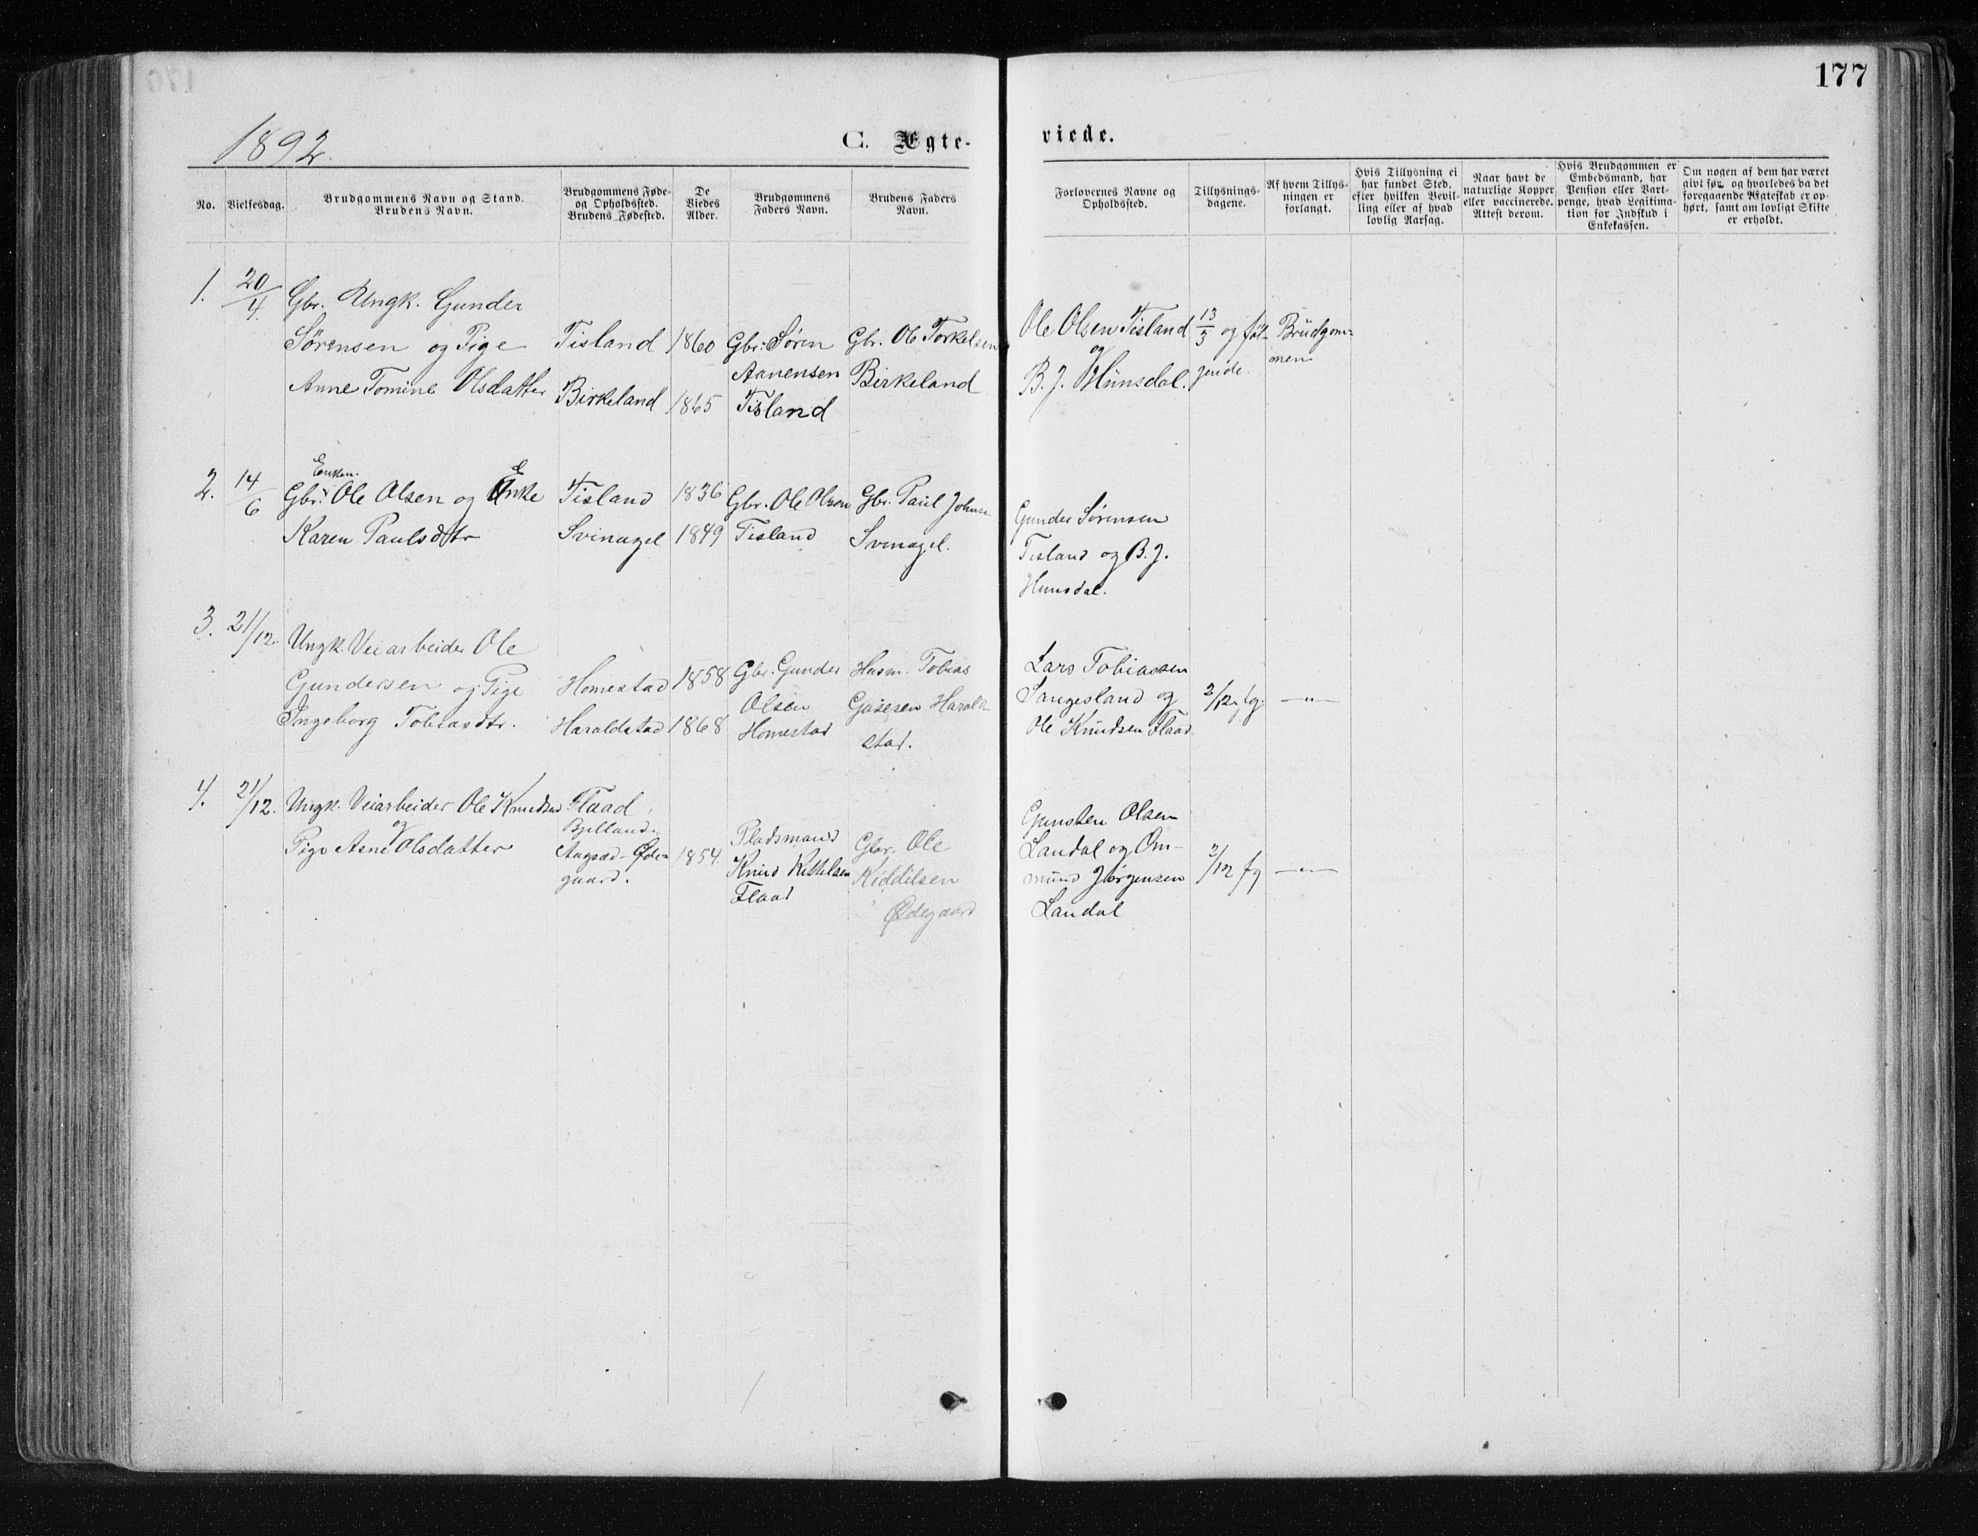 177
1892.
C. Ægte-
viede.
No.
Vielsesdag.
Brudgommens Navn og Stand.
Brudens Navn.
Brudgommens Føde-
og Opholdssted.
Brudens Fødested.
De
Viedes
Alder.
Brudgommens
Faders Navn.
Brudens Faders
Navn.
Forlovernes Navne og
Opholdssted.
Tillysnings-
dagene.
Af hvem Tillys-
ningen er
forlangt.
Hvis Tillysning ei
har fundet Sted,
efter hvilken Bevil-
ling eller af hvad
lovlig Aarsag.
Naar havt de
naturlige Kopper
eller vaccinerede.
Attest derom.
Hvis Brudgommen er
Embedsmand, har
Pension eller Vart-
penge, hvad Legitima-
tion for Indskud i
Enkekassen.
Om nogen af dem har været
givt før, og hvorledes da det
foregaaende Ægteskab er op-
hørt, samt om lovligt Skifte
er erholdt.
1.
20/4
Gbr. Ungk. Gunder
Sørensen og Pige
Anne Tomine Olsdatter
Tisland
Birkeland
1860
1865
Gbr. Søren
Aanensen
Tisland
Gbr. Ole Torkelsen
Birkeland
Ole Olsen Tisland
og
B. J. Hunsdal.
13/3 og føl-
gende.
Brudgom-
men
2.
14/6
Enkem.
Gbr. Ole Olsen og Enke
Karen Paulsdtr
Tisland
Svinagel
1836
1849
Gbr. Ole Olsen
Tisland
Gbr. Paul Johns
Svinagel.
Gunder Sørensen
Tisland og B. J.
Hunsdal.
3.
21/12.
Ungk. Veiarbeider Ole
Gundersen og Pige
Ingeborg Tobiasdtr.
Homestad
Haraldstad
1858
1868
Gbr. Gunder
Olsen
Homestad
Husm. Tobias
Haralds-
stad.
Lars Tobiassen
Langesland og
Ole Knudsen Flaad
2/12 fg.
—"—
4.
21/12.
Ungk. Veiarbeider Ole Knudsen
og
Pige Asne Olsdatter
Flaad
Bjelland.
Øde-
gaard.
1854
Pladsmand
Knud Kittelsen
Flaad
Gbr. Ole
Kiddilsen
Ødegaard
Gunsten Olsen
Landal og Om-
mund Jørgensen
Landal
2/12 fg
—"—